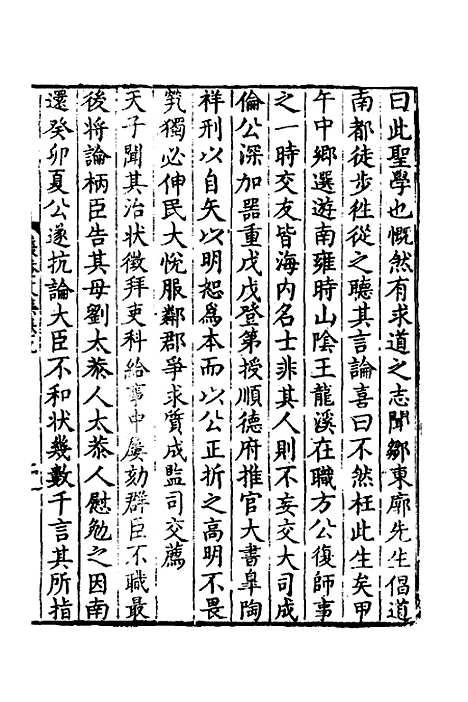 曰此聖學也慨然有求道之志聞鄒東廓先生倡道
南都徒步徃從之聽其言論喜曰不然枉此生矣甲
午中鄉選遊南雍時山陰王龍溪在職方公復師事
之一時交友皆海内名士非其人則不妄交大司成
倫公深加噐重戊戌登第授順德府推官大書臯陶
祥刑以自矢以明恕爲本而以公正折之高明不畏
煢獨必伸民大悅服鄰郡爭求質成監司交薦
天子聞其治狀徵拜吏科給事中屢劾群臣不職最
後将論柄臣告其母劉太恭人太恭人慰勉之因南
還癸卯夏公遂抗論大臣不和狀幾數千言其所指